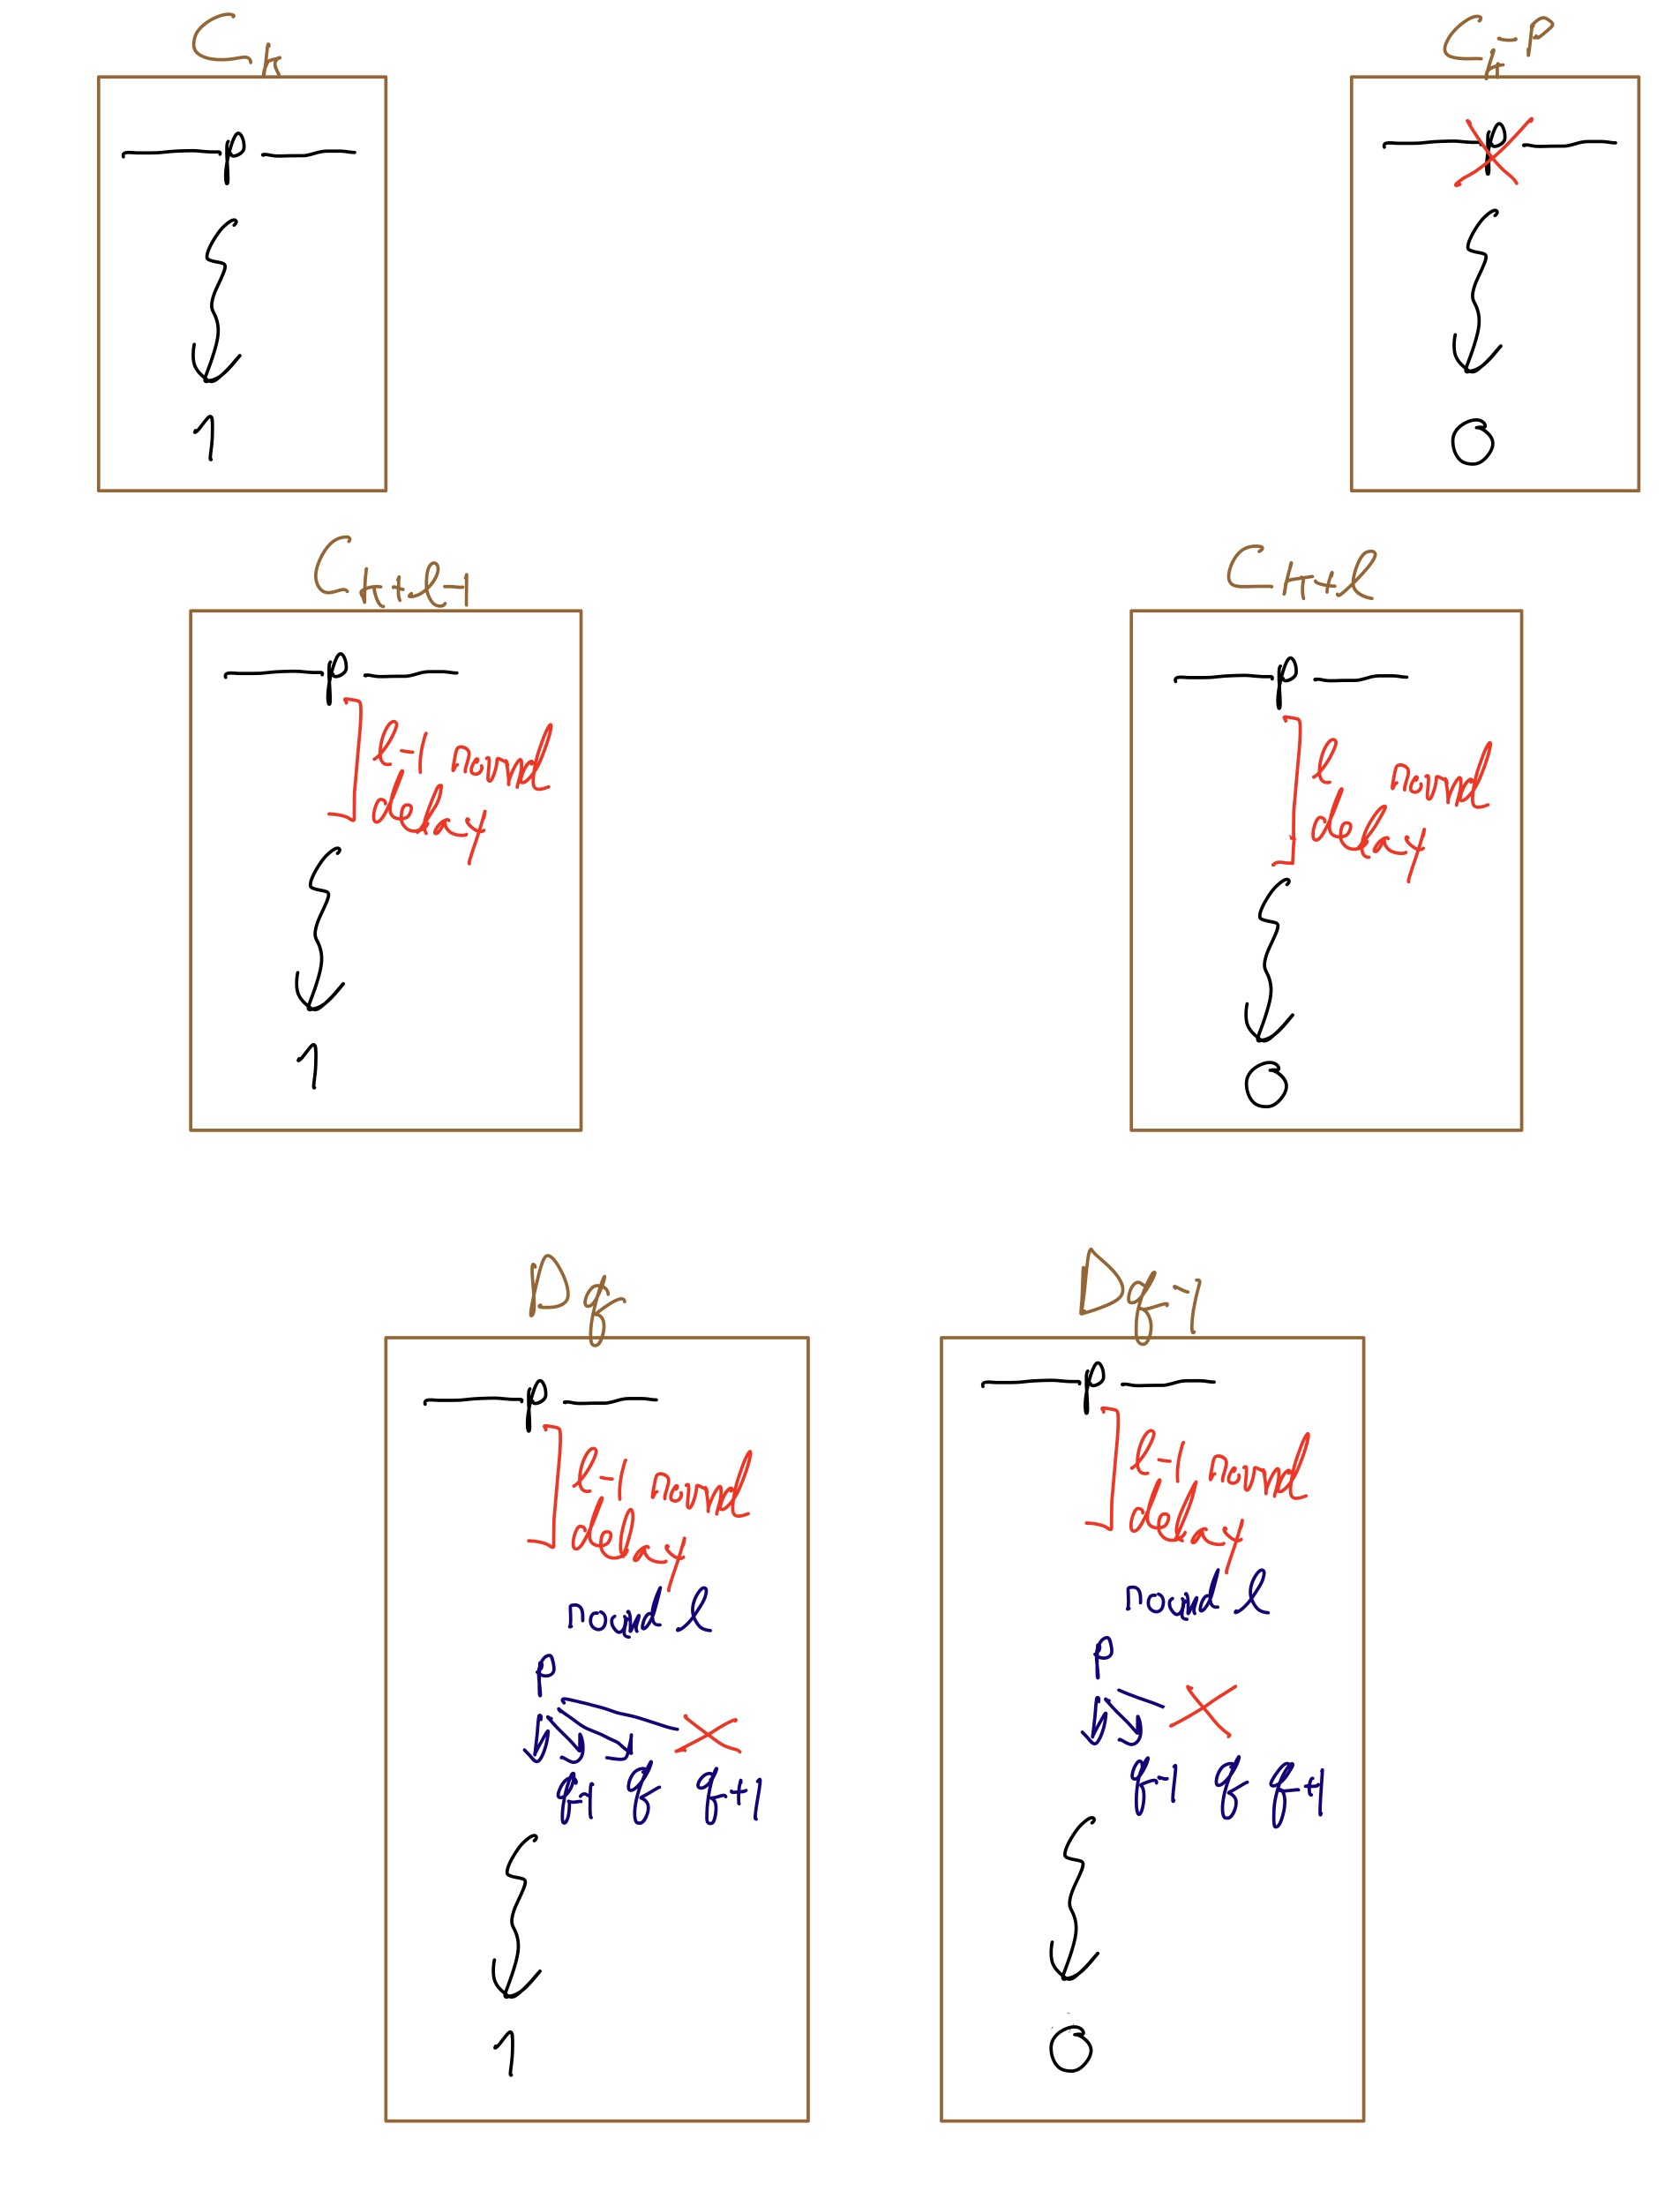 C_k
C_k - P
p
p
1
0
C_{k+l-1}
C_{k+l}
p
l-1 round
delay
1
p
l round
delay
0
D_q
p
l-1 round
delay
round l
p
q-1 q q+1
1
D_{q-1}
p
l-1 round
delay
round l
p
q-1 q q+1
0